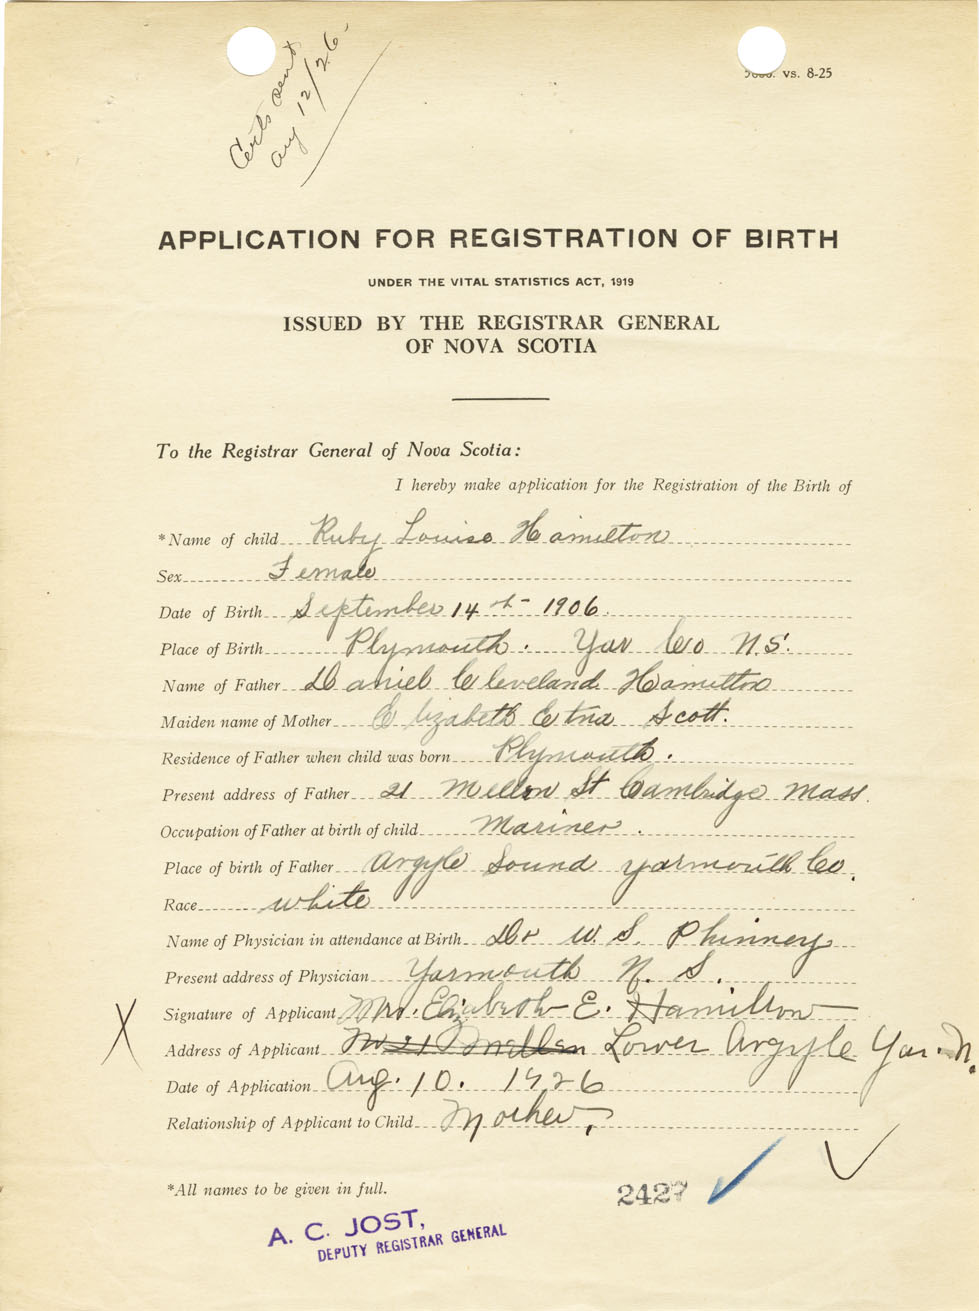 Certs sent
Aug 12/26
5000. vs. 8-25
APPLICATION FOR REGISTRATION OF BIRTH
UNDER THE VITAL STATISTICS ACT, 1919
ISSUED BY THE REGISTRAR GENERAL
OF NOVA SCOTIA
To the Registrar General of Nova Scotia:
I hereby make application for the Registration of the Birth of
*Name of child Ruby Louise Hamilton
Sex Female
Date of Birth September 14th 1906.
Place of Birth Plymouth. Yar Co N.S.
Name of Father Daniel Cleveland Hamilton
Maiden name of Mother Elizabeth Etna Scott.
Residence of Father when child was born Plymouth.
Present address of Father 21 Mellen St Cambridge Mass.
Occupation of Father at birth of child Mariner.
Place of birth of Father Argyle Sound Yarmouth Co.
Race white
Name of Physician in attendance at Birth Dr W. S. Phinney
Present address of Physician Yarmouth N. S.
Signature of Applicant Mrs. Elizabeth E. Hamilton
Address of Applicant 21 Mellen Lower Argyle Yar. N.
Date of Application Aug. 10. 1926
Relationship of Applicant to Child Mother,
*All names to be given in full.
2427
A. C. JOST,
DEPUTY REGISTRAR GENERAL